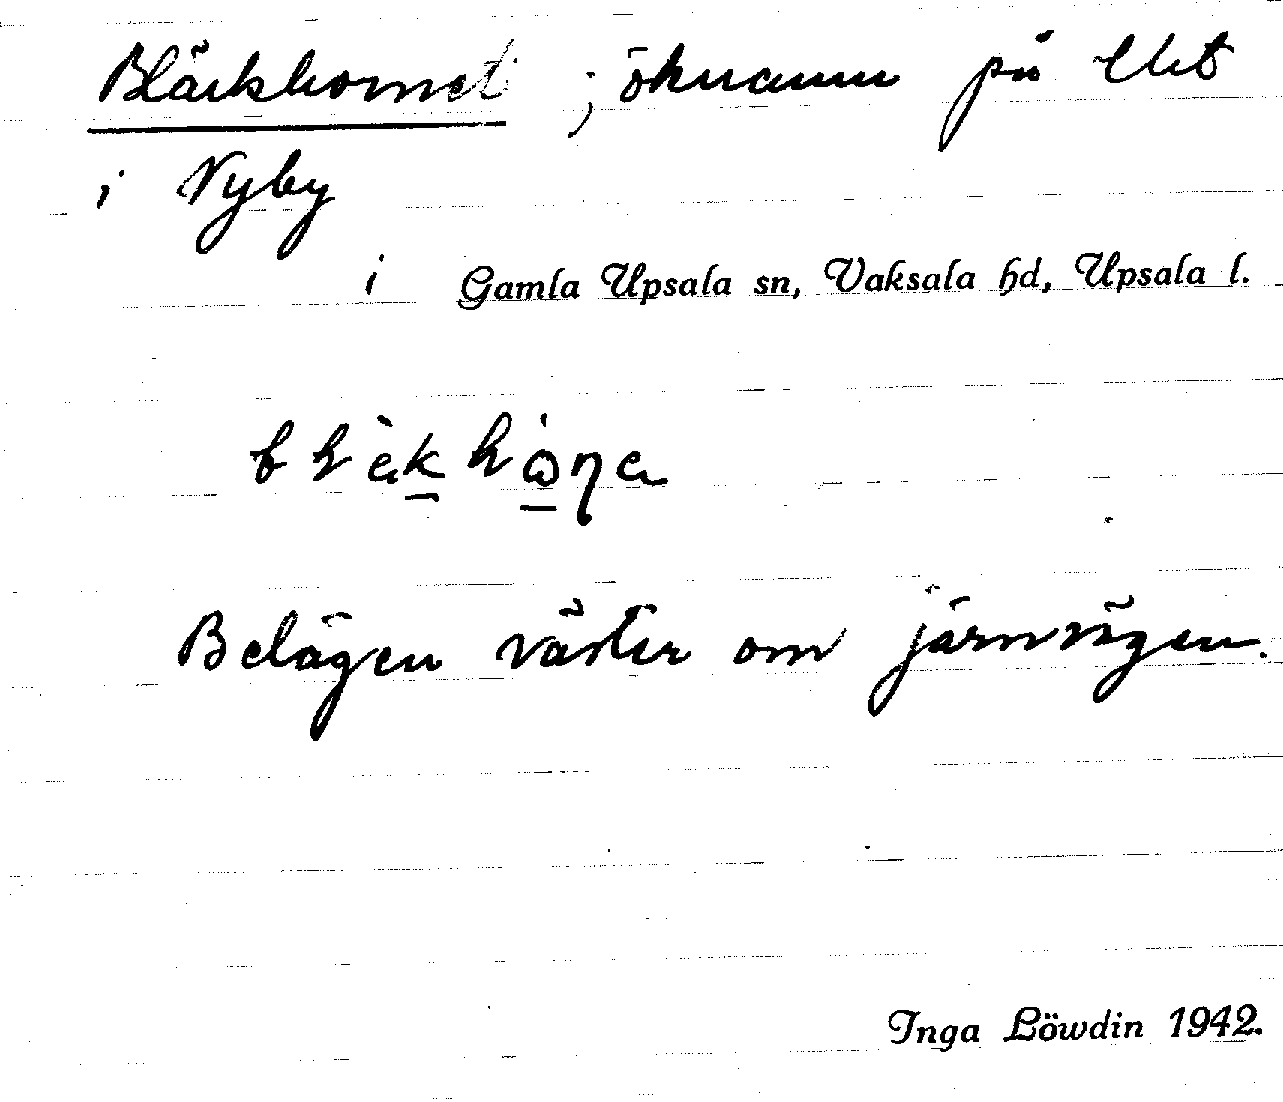 Bläckhornet ; öknamn på Utb
i Nyby
i Gamla Upsala sn, Vaksala hd, Upsala l.
Belägen väster om järnvägen.
Inga Löwdin 1942.